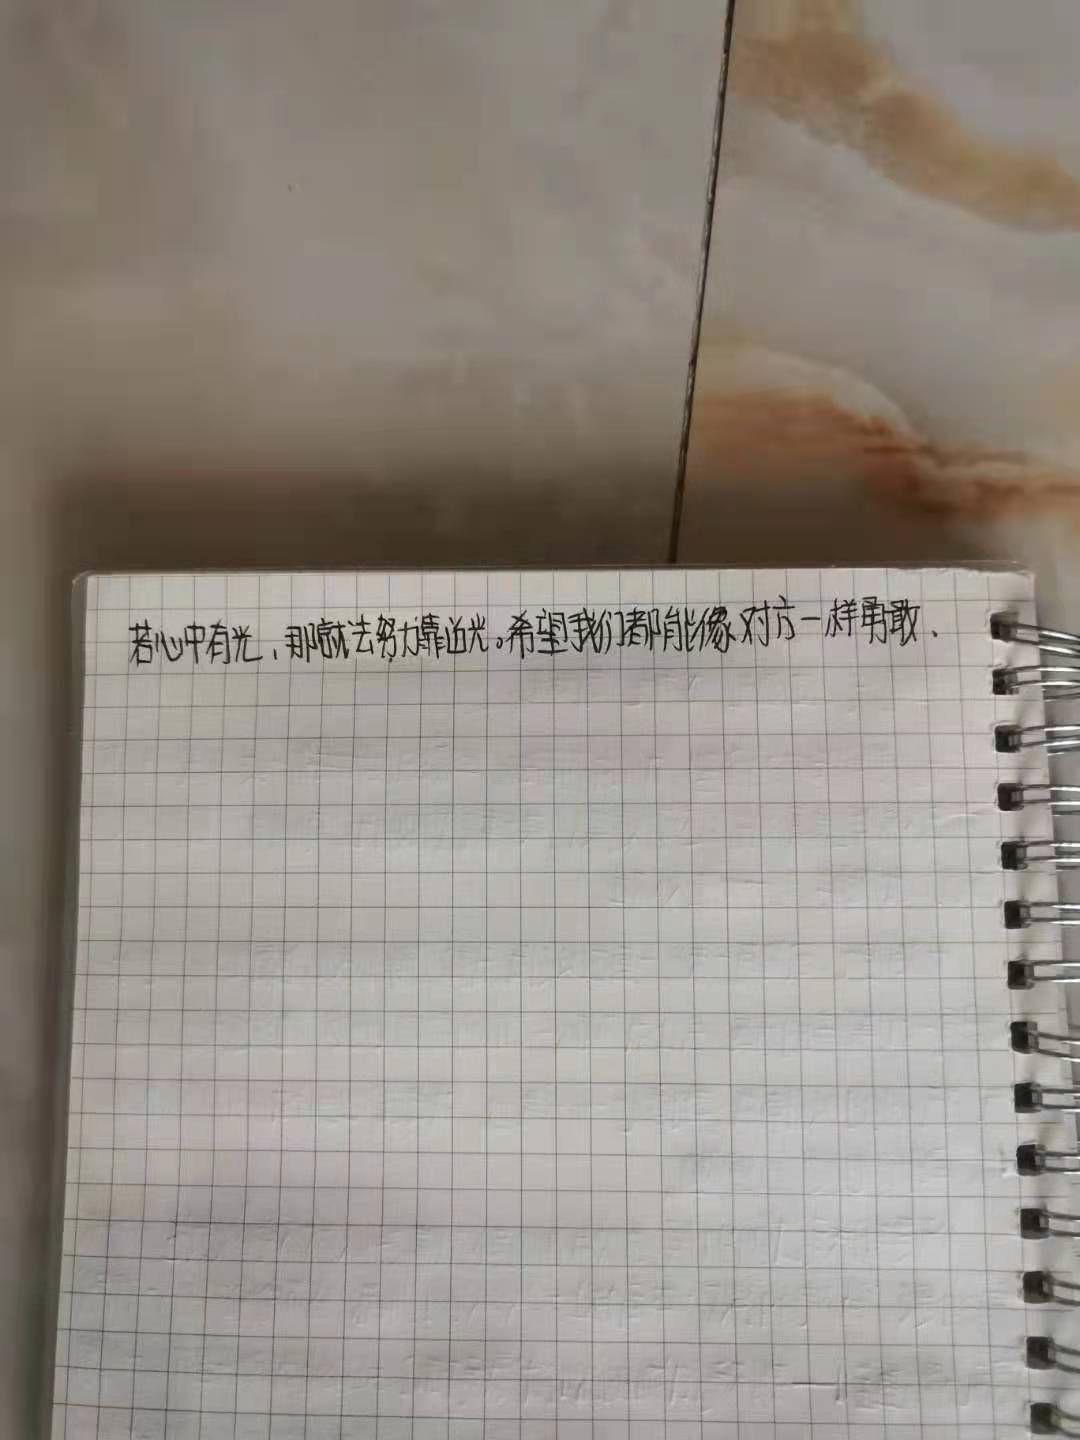 若心中有光，那就去努力靠近光。希望我们都能像对方一样勇敢、